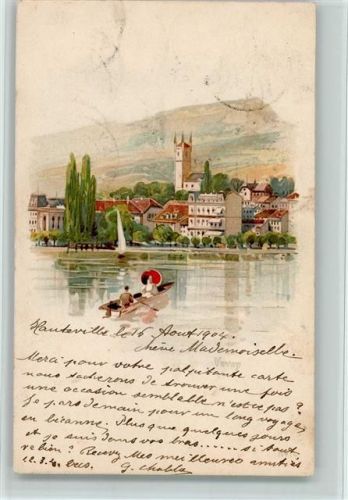 Vevey
Hauteville le 16 Aout 1904.
Chère Mademoiselle.
Merci pour votre palpitante carte
nous tacherons de trouver une fois
une occasion semblable n'est ce pas?
Je pars demain pour un long voyage
en bécanne. Plus que quelques jours
et je suis dans vos bras...... si tout
va bien? Recevez mes meilleures amitiés
G. Chable